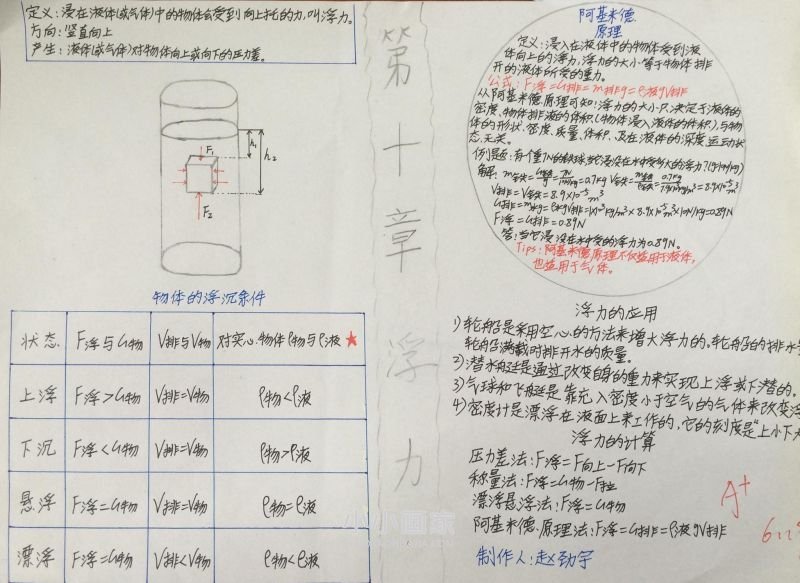 定义:浸在液体(或气体)中的物体会受到向上托的力,叫浮力。
方向:竖直向上
产生:液体(或气体)对物体向上或向下的压力差。
F₁
h₁
h₂
F₂
物体的浮沉条件
状态 F浮与G物 V排与V物 对实心物体ρ物与ρ液 ★
上浮 F浮>G物 V排=V物 ρ物<ρ液
下沉 F浮<G物 V排=V物 ρ物>ρ液
悬浮 F浮=G物 V排=V物 ρ物=ρ液
漂浮 F浮=G物 V排<V物 ρ物<ρ液
第十章浮力
阿基米德
原理
定义:浸入在液体中的物体受到液
体向上的浮力,浮力的大小等于物体排
开的液体所受的重力。
公式:F浮=G排=m排g=ρ液gV排
从阿基米德原理可知:浮力的大小只决定于液体的
密度、物体排液的体积(物体浸入液体的体积),与物
体的形状、密度、质量、体积、及在液体的深度、运动状
态无关。
例题:有个重7N的铁球,当它浸没在水中受多大的浮力?(g=10N/kg)
解:m铁=G铁/g=7N/10N/kg=0.7kg V铁=m铁/ρ铁=0.7kg/7.9×10³kg/m³=8.9×10⁻⁵m³
V排=V铁=8.9×10⁻⁵m³
G排=m水g=ρ水gV排=1×10³kg/m³×8.9×10⁻⁵m³×10N/kg=0.89N
F浮=G排=0.89N
答:当它浸没在水中受的浮力为0.89N。
Tips:阿基米德原理不仅适用于液体,
也适用于气体。
浮力的应用
1)轮船是采用空心的方法来增大浮力的,轮船的排水
轮船满载时排开水的质量。
2):潜水艇是通过改变自身的重力来实现上浮或下潜的。
3)气球和飞艇是靠充入密度小于空气的气体来改变浮
4)密度计是漂浮在液面上来工作的,它的刻度是"上小下大
浮力的计算
压力差法:F浮=F向上-F向下
称量法:F浮=G物-F拉
漂浮悬浮法:F浮=G物
阿基米德原理法:F浮=G排=ρ液gV排
制作人:赵劲宇
A+
小小画家